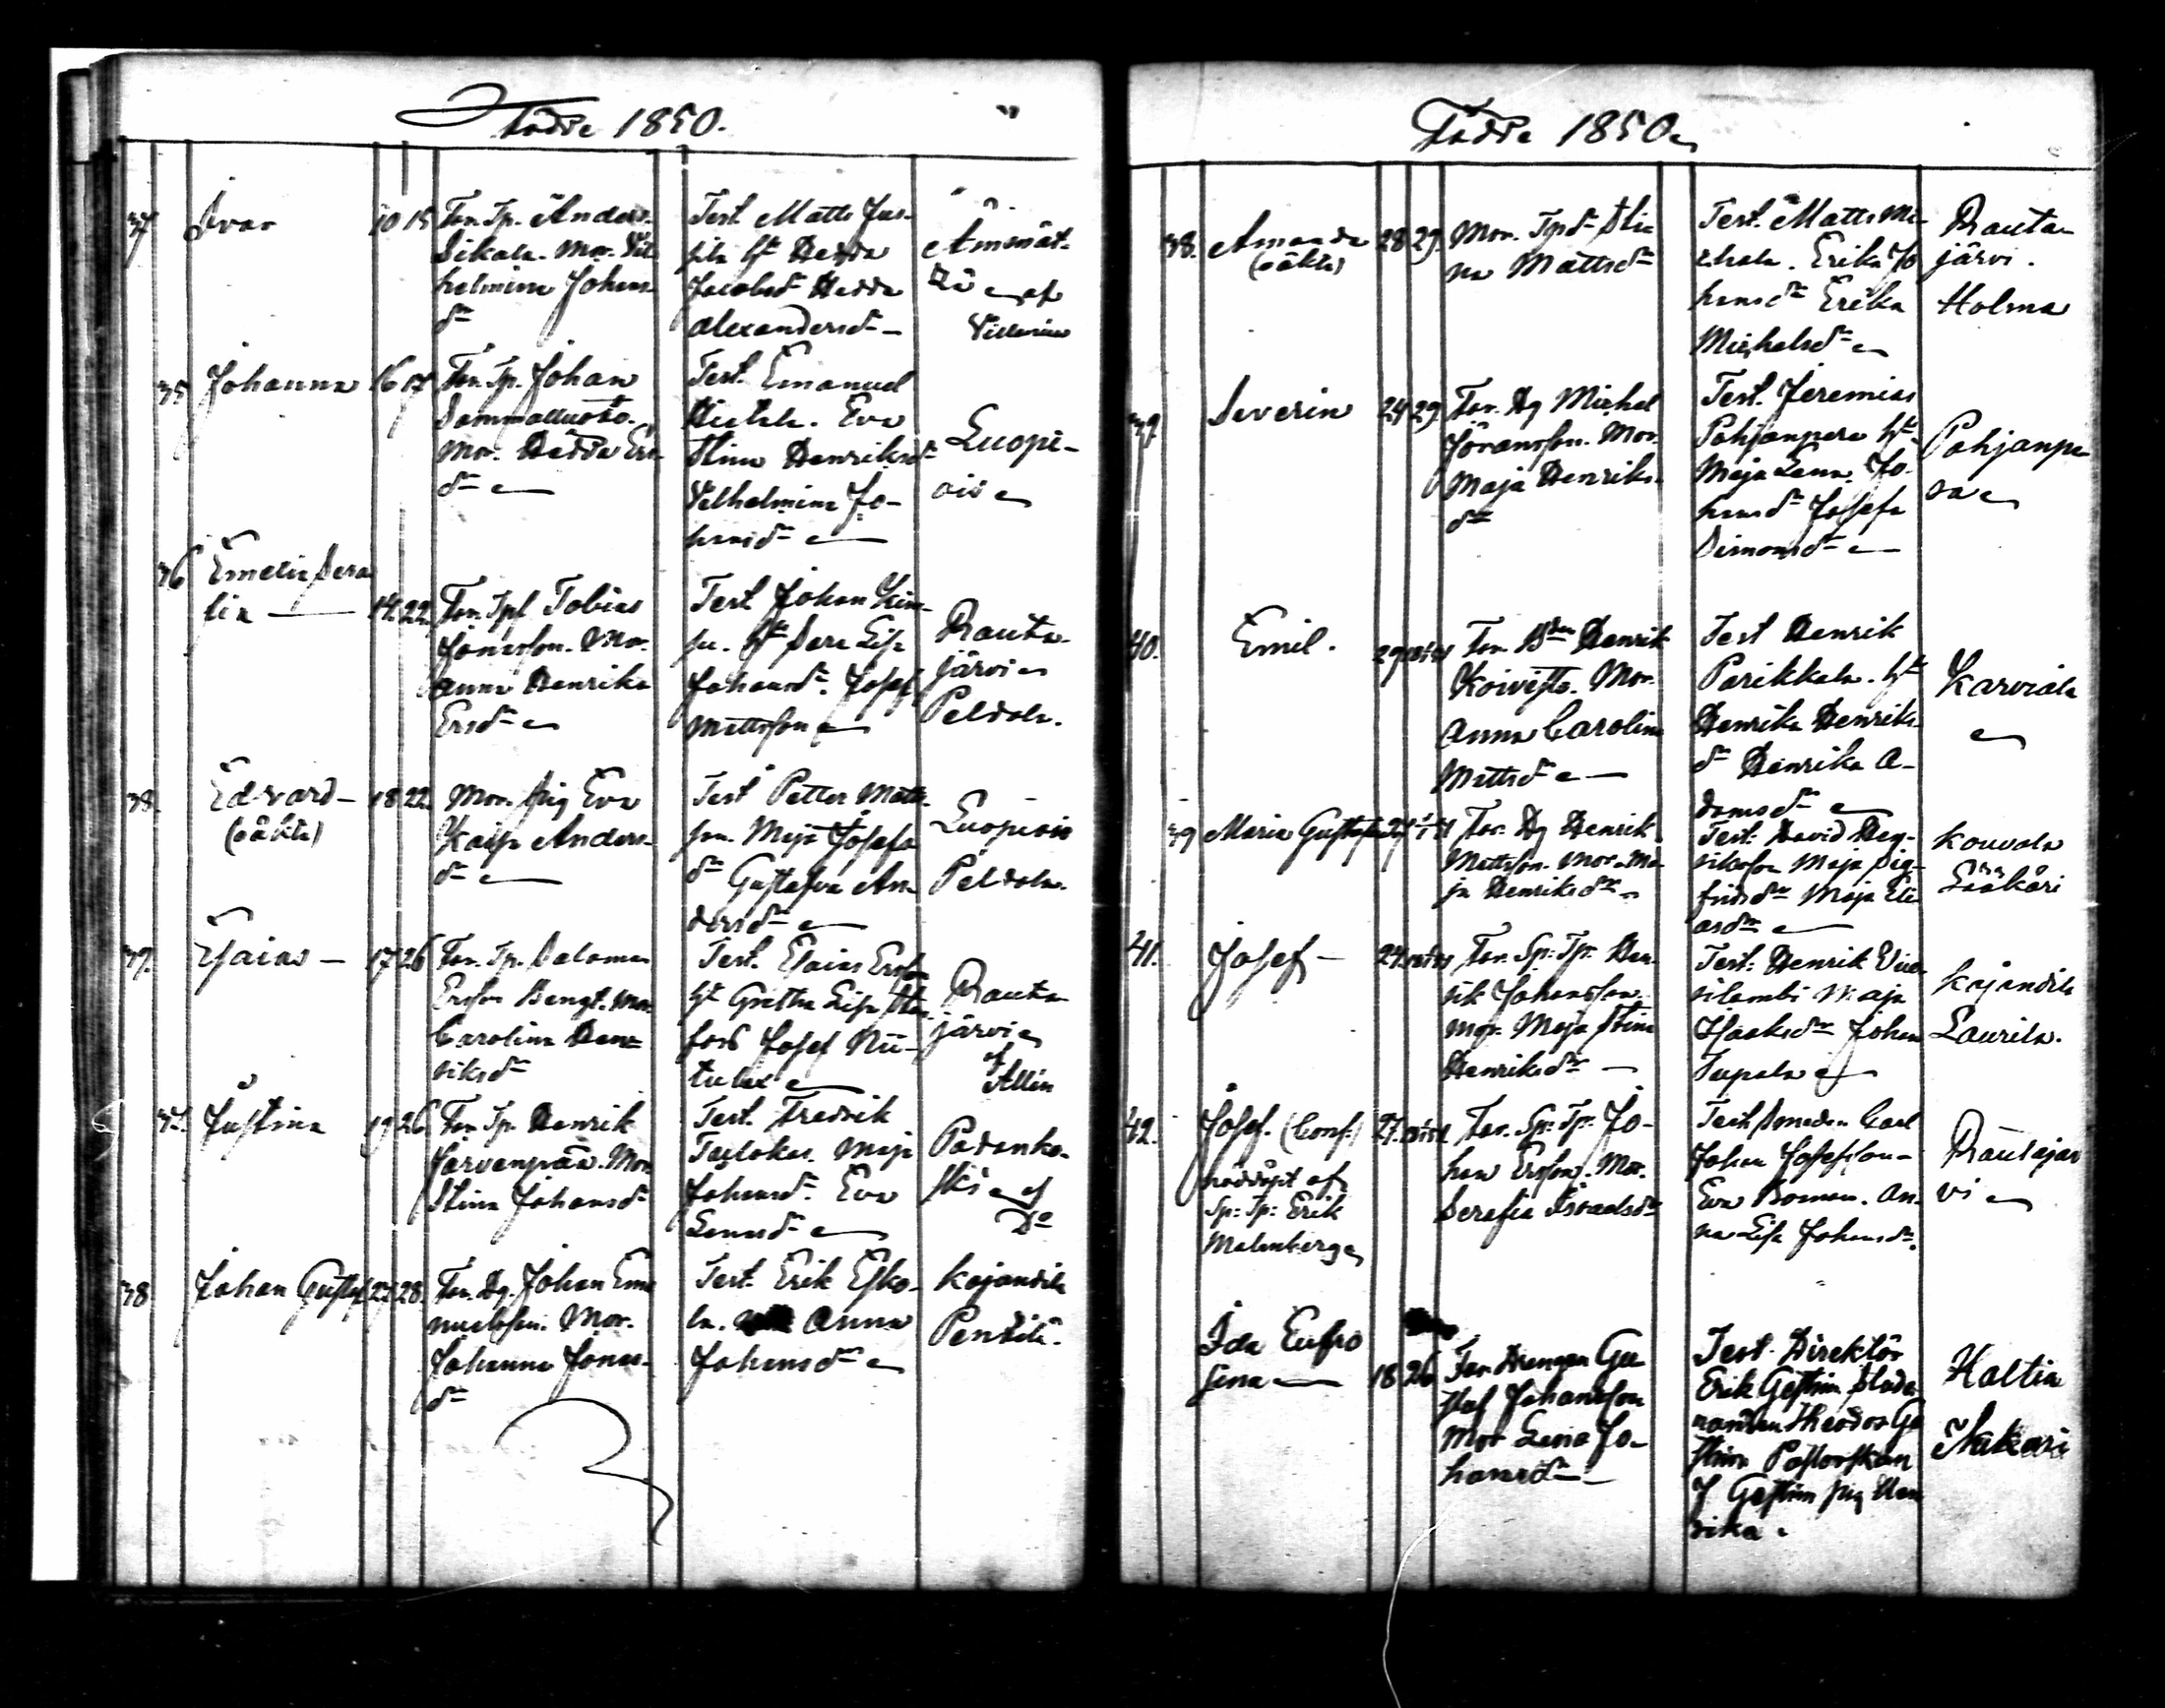 Födde 1850.
37 Ivar 10 15 Far. Tp. Anders
Sikala. Mor. Vil
helmina Johans
dr
Test. Matts Jus
sila ht Hedda
Jacobsdr Hedda
Alexandersdr
Ämmät
35 Johanna 16 17 Far. Tp. Johan
Sammallusto.
Mor. Hedda Ers
dr
Test. Emanuel
Hietala. Eva
Stina Henriksdr
Vilhelmina Jo-
hansdr
Luopi-
ois
36 Emelie Sera
fia 14. 22. Far. Tpf Tobias
Jonasson. Mor.
Anna Henrika
Ersdr
Test Johan
ht Sara Lisa
Johansdr. Josef
Mattsson
Rauta
järvi
Peldola.
38. Edvard 18 22. Mor. Pig Eva
(oäkta) Kaisa Anders
dr
Test Petter Matts
son. Maja Josefs
dr Gustafva An
dersdr
Luopiois
Peldola.
37. Esaias 17 26 Far. Tp. Salomon
Ersson Bengt. Mor
Carolina Hen
riksdr
Test. Esaias Ersson
ht Gretha Lisa
Josef Nii-
tula
Rauta
järvi
af
Allin
Justina 19 26. Far. Tp. Henrik
Järvenpää. Mor
Stina Johansdr
Test. Fredrik
Maja
Johansdr. Eva
Padanko-
ski af
Do
38 Johan Gustaf 27 28. Far. Dg. Johan Ema
nuelsson. Mor.
Johanna Jonas
dr
Test. Erik Esko-
la. Anna
Johansdr
Kajandila
Pentilä.
Födde 1850
38. Amanda 28 29. Mor. Tpdr Sti
(oäkta) na Mattsdr
Test. Matts Mi
chala. Erika Jo
hansdr Erika
Michelsdr
Rauta
järvi.
Holma
39. Severin 24 29. Far. Dg Michel
Göransson. Mor.
Maja Henriks
dr
Test. Jeremias
Pohjanpera ht
Maja Lena Jo
hansdr Josefa
Simonsdr
Pohjanpe
ra
40. Emil. 29 Far. Bden Henrik
Koivisto. Mor.
Anna Carolina
Mattsdr
Test Henrik
Parikkala. ht
Henrika Henriks
dr Henrika A-
damsdr
Karviala
39 Maria Gustafva Far. Dg Henrik
Mattsson. Mor. Ma
ja Henriksdr
Test. David Hen-
riksson Maja Sig-
fridsdr Maja Eli
asdr
Kouvala
Lääkäri
41. Josef 24. Far. Sp: Tp. Hen
rik Johansson
mor. Maja Stina
Henriksdr
Test: Henrik
Maja
Isaksdr Johan
Kajandila
Laurila.
42. Josef. (Conf.) 27. Far. Sp: Tp. Jo-
nöddöpt af han Ersson. Mor.
Sp: Tp: Erik Serafia Israelsdr
Malmberg
Test Smeden Carl
Johan Josefsson
Eva Boman. An-
na Lisa Johansdr.
Rautajär
vi
Ida Eufro
sina 18 26 Far Drengen Gu
staf Johansson
Mor Lena Jo-
hansdr
Test. Direktör
Erik Gestrin Stude
randen Theodor Ge
strin Pastorskan
J Gestrin pig Hen
rika.
Haltia